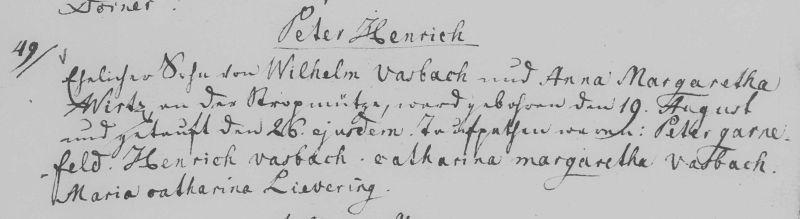 Dörner.
Peter Henrich
49/
Ehelicher Sohn von Wilhelm Vasbach und Anna Margaretha
Wirtz an der Stropmütze, ward gebohren den 19. August
und getauft den 26. ejusdem. Taufpathen waren: Peter garne-
feld. Henrich vasbach. catharina margaretha Vasbach.
Maria catharina Lievering.